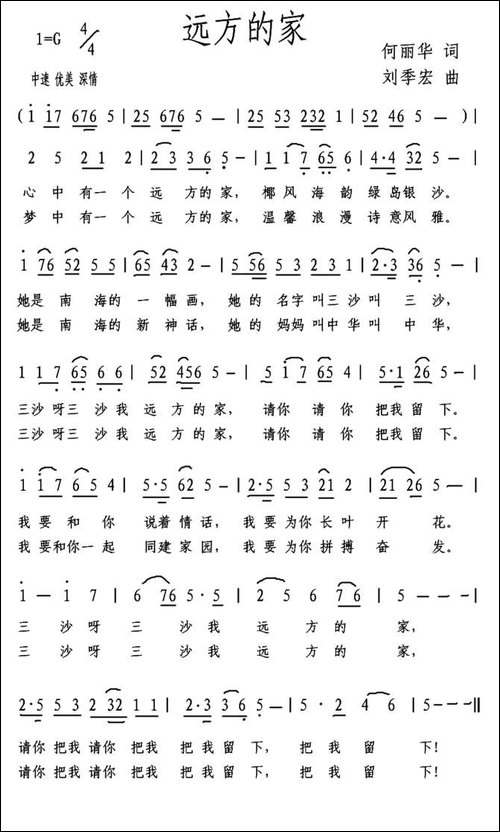 远方的家
1=G 4/4
何丽华 词
中速 优美 深情
刘季宏 曲
( 1 17 676 5 | 25 676 5 - | 25 53 232 1 | 52 46 5 - )
2 5 2 1 2 | 2 3 3 6 5 - | 1 1 7 65 6 | 4·4 32 5 - |
心 中 有 一 个 远 方 的 家, 椰 风 海 韵 绿 岛 银 沙。
梦 中 有 一 个 远 方 的 家, 温 馨 浪 漫 诗 意 风 雅。
1 76 52 5 5 | 65 43 2 - | 5 56 5 3 2 3 1 | 2·3 36 5 - |
她是 南 海的 一 幅 画, 她 的 名字 叫 三 沙 叫 三 沙,
她是 南 海的 新 神 话, 她 的 妈妈 叫 中 华 叫 中 华,
1 1 7 65 6 6 | 52 456 5 - | 5 1 7 65 4 | 5·1 26 5 - |
三 沙 呀 三 沙 我 远 方 的 家, 请 你 请 你 把 我 留 下。
三 沙 呀 三 沙 我 远 方 的 家, 请 你 请 你 把 我 留 下。
1 1 7 6 5 4 | 5·5 62 5 - | 2·5 5 3 21 2 | 21 26 5 - |
我 要 和 你 说着 情 话, 我 要 为 你 长 叶 开 花。
我 要 和 你 一 起 同建 家 园, 我 要 为 你 拼 搏 奋 发。
1 — 1 7 | 6 76 5 · 5 | 2 5 6 7 6 | 5 - - - |
三 沙 呀 三 沙 我 远 方 的 家,
三 沙 呀 三 沙 我 远 方 的 家,
2·5 5 3 2 32 1 1 | 2·3 3 6 5 - | 5 · 2 4 6 | 5 - - - ||
请你 把我 请你 把我 把 我 留 下, 把 我 留 下!
请你 把我 请你 把我 把 我 留 下, 把 我 留 下!